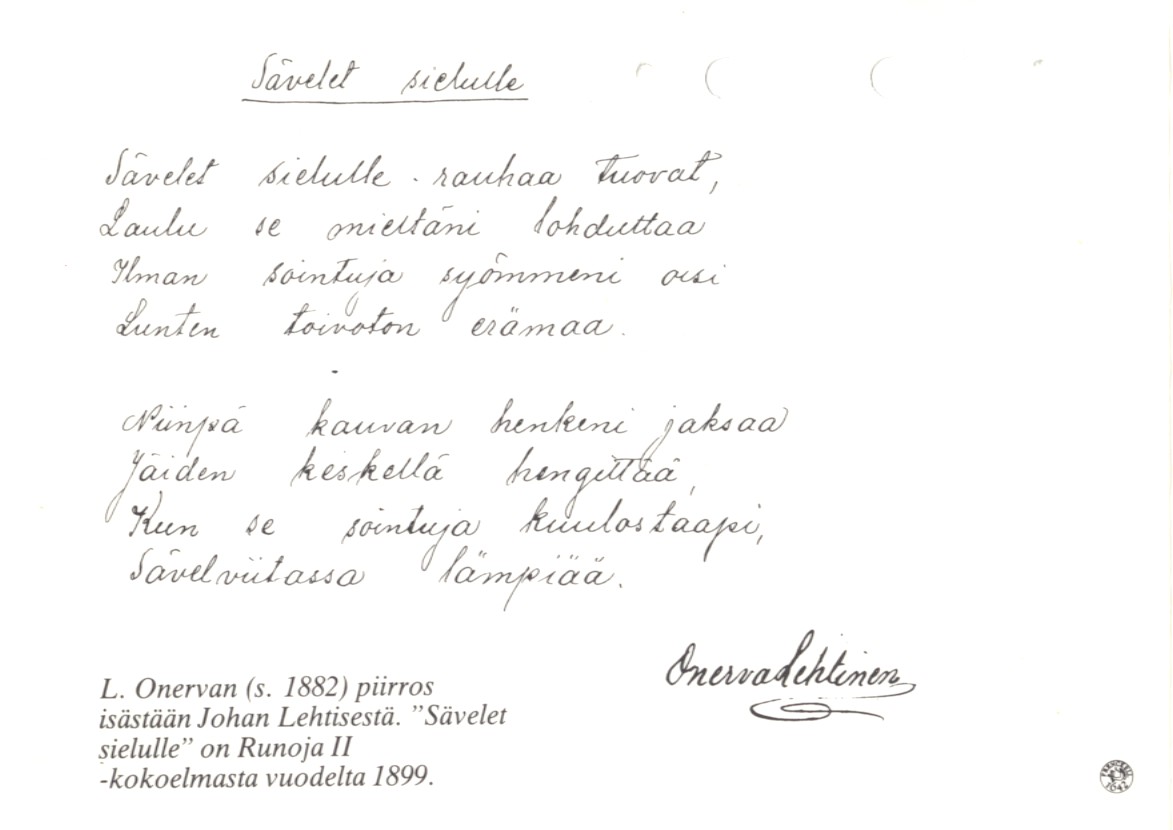 Sävelet sielulle
Sävelet sielulle rauhaa tuovat,
Laulu se mieltäni lohduttaa
Ilman sointuja syömmeni oisi
Lunten toivoton erämaa.
Niinpä kauvan henkeni jaksaa
Jäiden keskellä hengittää,
Kun se sointuja kuulostaapi,
Sävelviitassa lämpiää.
Onerva Lehtinen
L. Onervan (s. 1882) piirros
isästään Johan Lehtisestä. ”Sävelet
sielulle” on Runoja II
-kokoelmasta vuodelta 1899.
1642